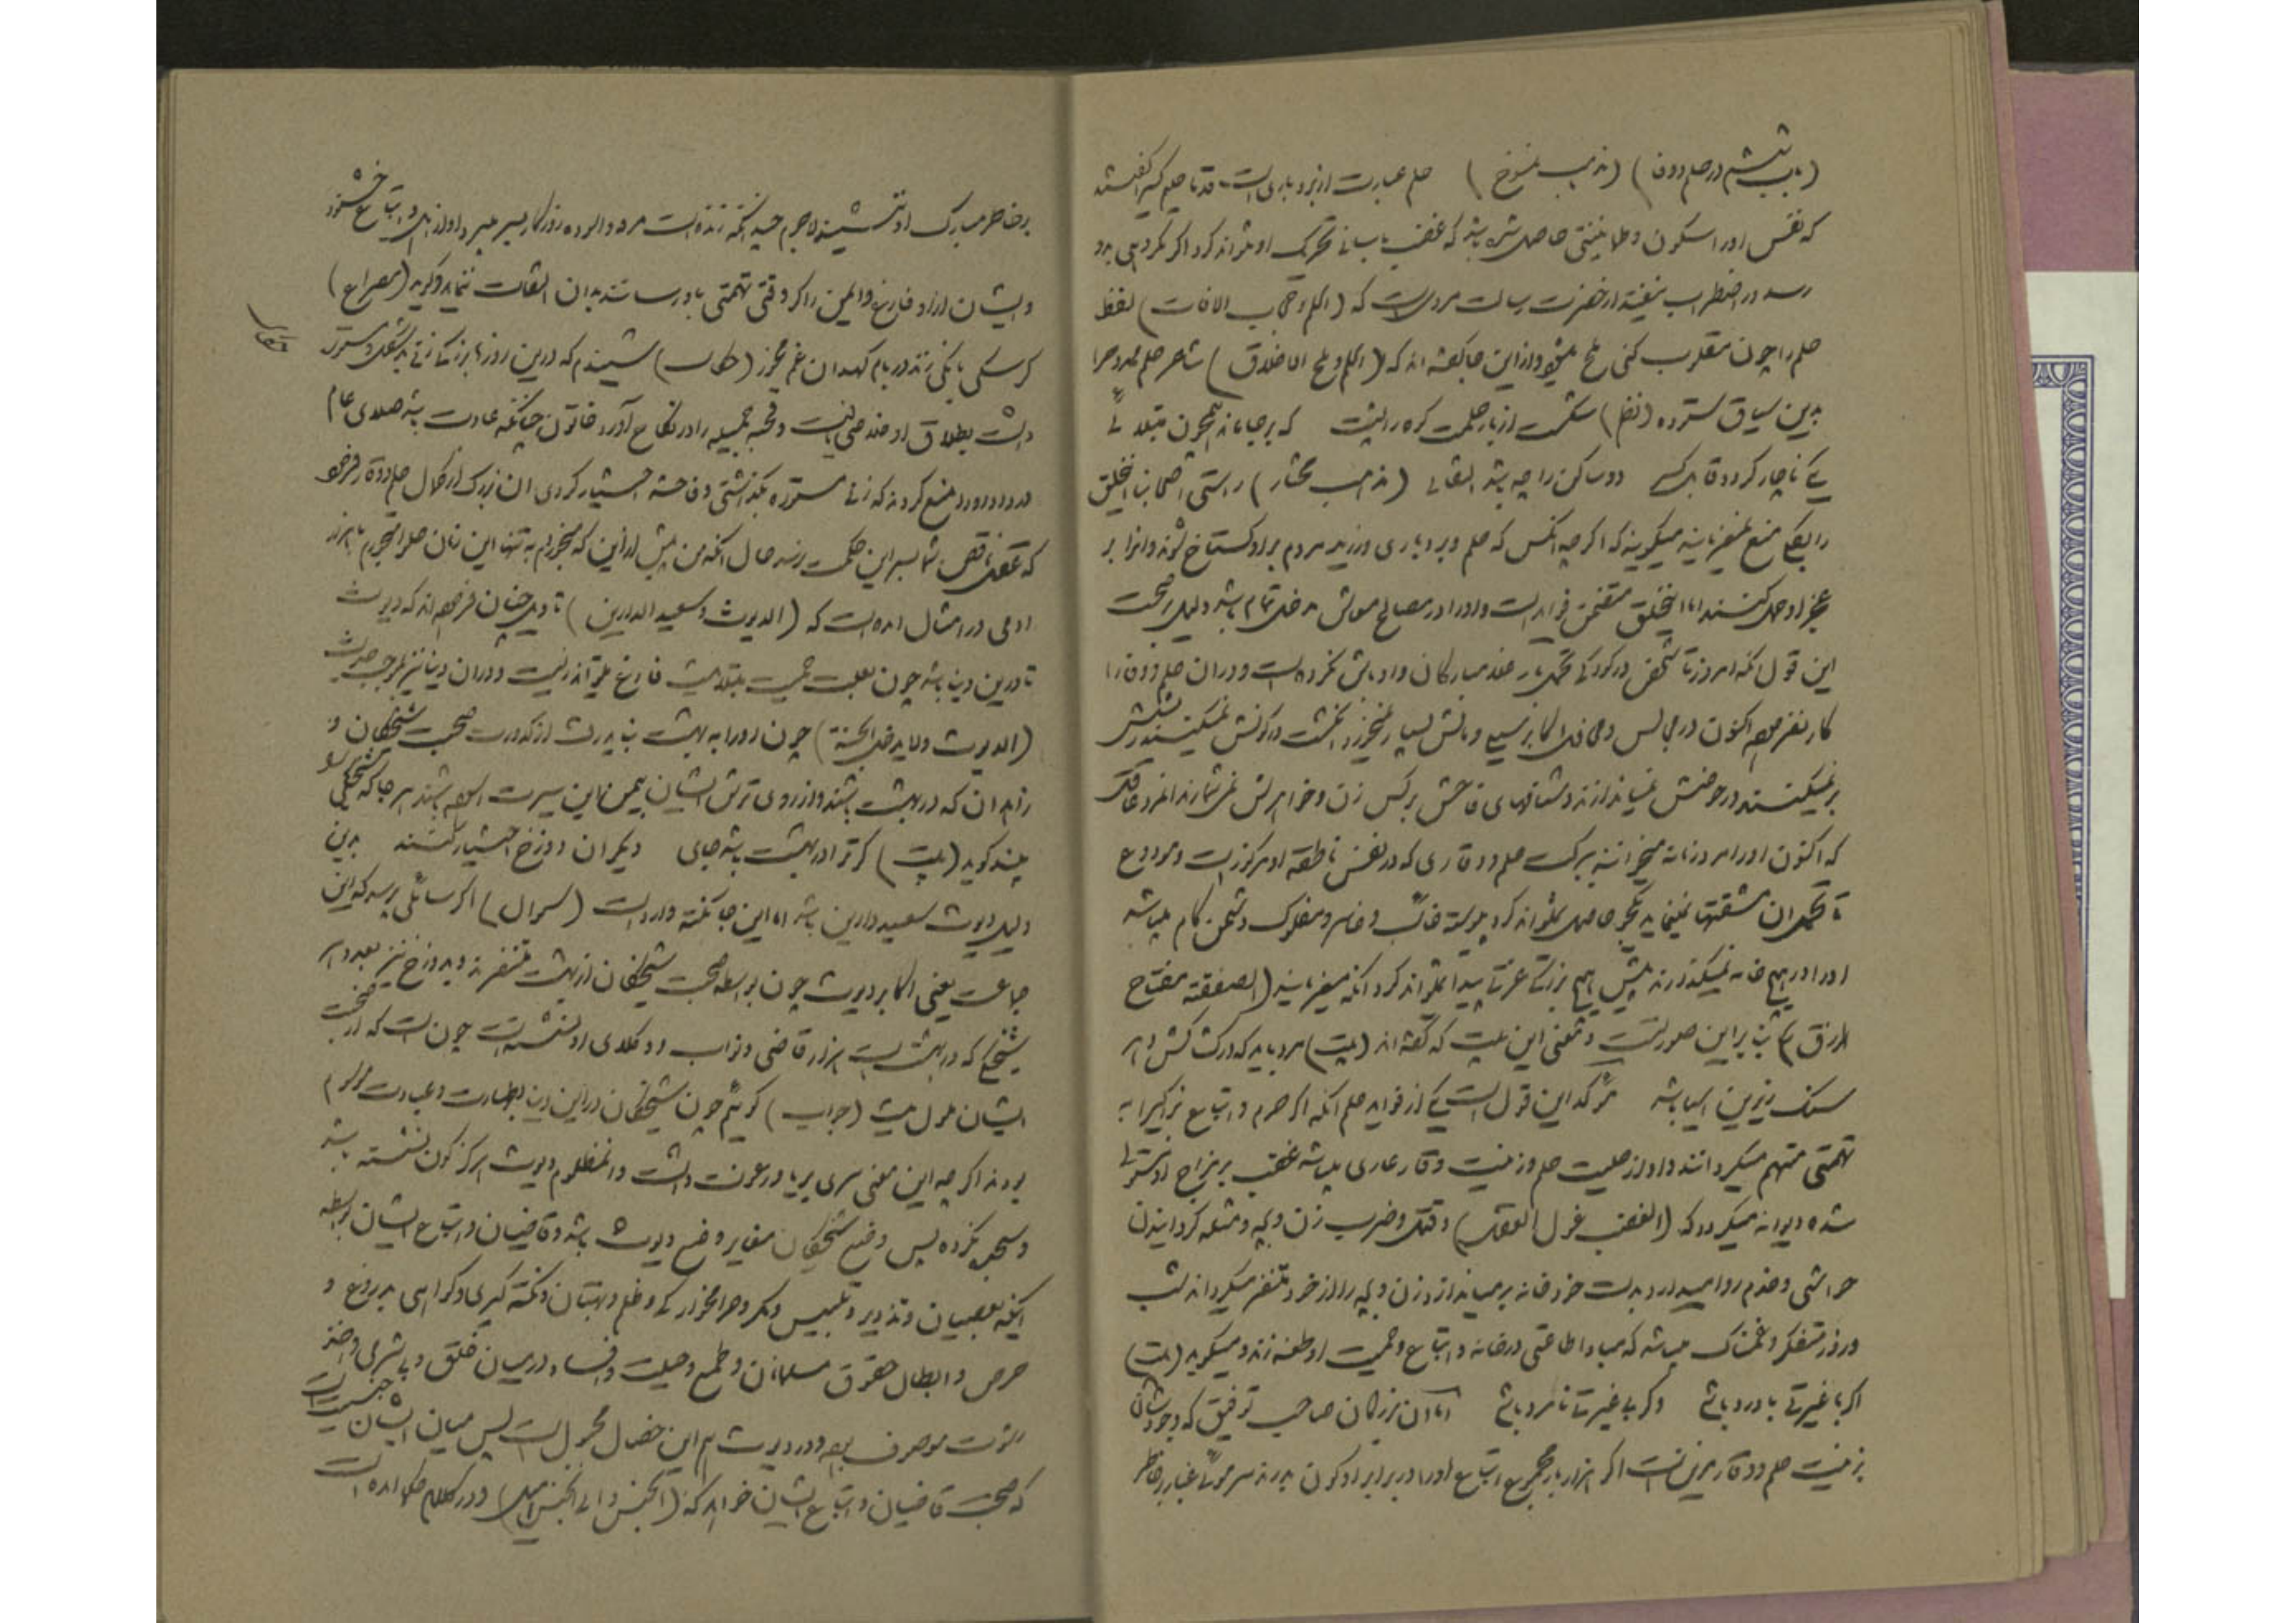 (باب ششم در حلم و وفا) (مذهب منسوخ) حلم عبارت از بردباری است قدما حلیم کسی را گفتندی
که نفس او را سکون و طمانینتی حاصل شده باشد که غضب باسانی تحریک او نتواند کرد و اگر مکروهی بدو
رسد در اضطراب نیفتد از حضرت رسالت مرویست که (الحلم حجاب الافات) لفظ
حلم را چون مقلوب کنی ملح شود و از این جا گفته اند که (الحلم ملح الاخلاق) شاعر حلم ممدوح را
بدین سیاق ستوده (نظم) شکست از بار حلمت کوه را پشت که بر جا مانده همچون مبتلائی
یکی ناچار گردد قابل کسر دو ساکن را چو باشد التقائی (مذهب مختار) راستی اصحابنا این خلق
را بکلی منع نمیفرمایند میگویند که اگر چه آنکس که حلم و بردباری ورزید مردم بر او گستاخ شوند و انرا بر
عجز او حمل کنند اما این خلق متضمن فواید است و او را در مصالح معاش مدخل تمام باشد دلیل بر صحت
این قول آنکه امروز تا شخص در کودکی تحمل بار غلامبارگان و اوباش نکرده است و در ان حلم و وقار را
کار نفرموده اکنون در مجالس و محافل اکابر سیلی و مالش بسیار نمیخورد انگشت در کونش نمیکنند ریشش
بر نمیکنند در حوضش نمیاندازند و دشنامهای فاحش بر کس زن و خواهرش نمیشمارند آنمرد عاقل
که اکنون او را مرد زمانه میخوانند ببرکت حلم و وقاری که در نفس ناطقه او مرکوز است و مودوع
تا تحمل ان مشقتها نمینماید هیچ حاصل نمیتواند کرد پیوسته خائب و خاسر و مفلوک و دشمن کام میباشد
او را در هیچ خانه نمیگذارند پیش هیچ بزرگی عزتی پیدا نمیتواند کرد انکه میفرمایند (الصفقة مفتاح
الرزق) بنابر این صورتست و معنی این بیت که گفته اند (بیت) مرد باید که در کشاکش دهر
سنگ زیرین آسیا باشد مؤکد این قول است یکی از فواید حلم آنکه اگر حرم و اتباع بزرگی را به
تهمتی متهم میگردانند و او از حلیت حلم و زینت وقار عاری میباشد غضب بر مزاج او مستولی
شده دیوانه میگردد که (الغضب غول العقل) و قتل و ضرب زن و بچه و مثله گردانیدن
حواشی و خدم روا میدارد بدست خود خانه بر میاندازد زن و بچه را از خود متنفر میگرداند شب
و روز متفکر و غمناک میباشد که مبادا طاعنی در خانه و اتباع و حمیت او طعنه زند و میگوید (بیت)
اگر با غیرتی با درد باشی وگر بی غیرتی نامرد باشی اما ان بزرگان صاحب توفیق که وجودشان
بزینت حلم و وقار مزین است اگر هزار بار مجموع اتباع او را در برابر او کون بدرند سر موئی غبار بر خاطر
بر خاطر مبارک او ننشیند لاجرم چندانکه زنده است مرفه و آسوده روزگار بسر میبرد او از اهل و اتباع خشنود
و ایشان از او فارغ و ایمن و اگر وقتی تهمتی باو رسانند بدان التفات ننماید و گوید (مصراع)
گر سگی بانگی زند در بام کهدان غم مخور (حکایت) شنیدم که درین روزها بزرگی زنی بدشکل و مستوره
داشت بطلاق از او خلاصی یافت و قحبه جمیله را در نکاح آورد خاتون چنانکه عادت باشد صلای عام
در داد او را منع کردند که زنی مستوره بگذاشتی و فاحشه اختیار کردی ان بزرگ از کمال حلم و وقار فرمود
که عقل ناقص شما بسر این حکمت نرسد حال آنکه من پیش از این گه میخوردم به تنها این زمان حلوا میخورم با هزار
ادمی در امثال امده است که (الدیوث سعید الدارین) تاویل چنان فرموده اند که دیوث
تا درین دنیا باشد چون بعلت حمیت مبتلا نیست فارغ میتواند زیست و در ان دنیا نیز بموجب حدیث
(الدیوث لا یدخل الجنة) چون او را به بهشت نباید رفت از کدورت صحبت شیخکان و
زاهدان که در بهشت باشند و از روی ترش ایشان بیمن این سیرت آسوده باشد هر جا که شیخکی را
بیند گوید (بیت) گر تو را در بهشت باشد جای دیگران دوزخ اختیار کنند بدین
دلیل دیوث سعید دارین باشد اما این جا نکته وارد است (سوال) اگر سائلی پرسد که این
جماعت یعنی اکابر دیوث چون بواسطه صحبت شیخکان از بهشت متنفرند و بدوزخ نیز بعدد هر
شیخکی که در بهشت است هزار قاضی و نواب و وکلای او نشسته است چون است که از صحبت
ایشان ملول نیست (جواب) گوئیم چون شیخکان در این دنیا بطهارت و عبادت موسوم
بودند اگر چه این معنی سری بریا و رعونت داشت و انمظلوم دیوث هرگز کون نشسته باشد
و سجده نکرده پس وضع شیخکان مغایر وضع دیوث باشد و قاضیان و اتباع ایشان بواسطه
آنکه بعصیان و تذویر و تلبیس و مکر و حرامخوارگی و ظلم و بهتان و نکته گیری و گواهی بدروغ و
حرص و ابطال حقوق مسلمانان و طمع و حیلت و افساد در میان خلق و بی شرمی و اخذ
رشوت موصوف بودند و در دیوث هم این خصال مجبول است پس میان ایشان جنسیت است
که صحبت قاضیان و اتباع ایشان خواهد که (الجنس الی الجنس امیل) و در کلام حکما امده است